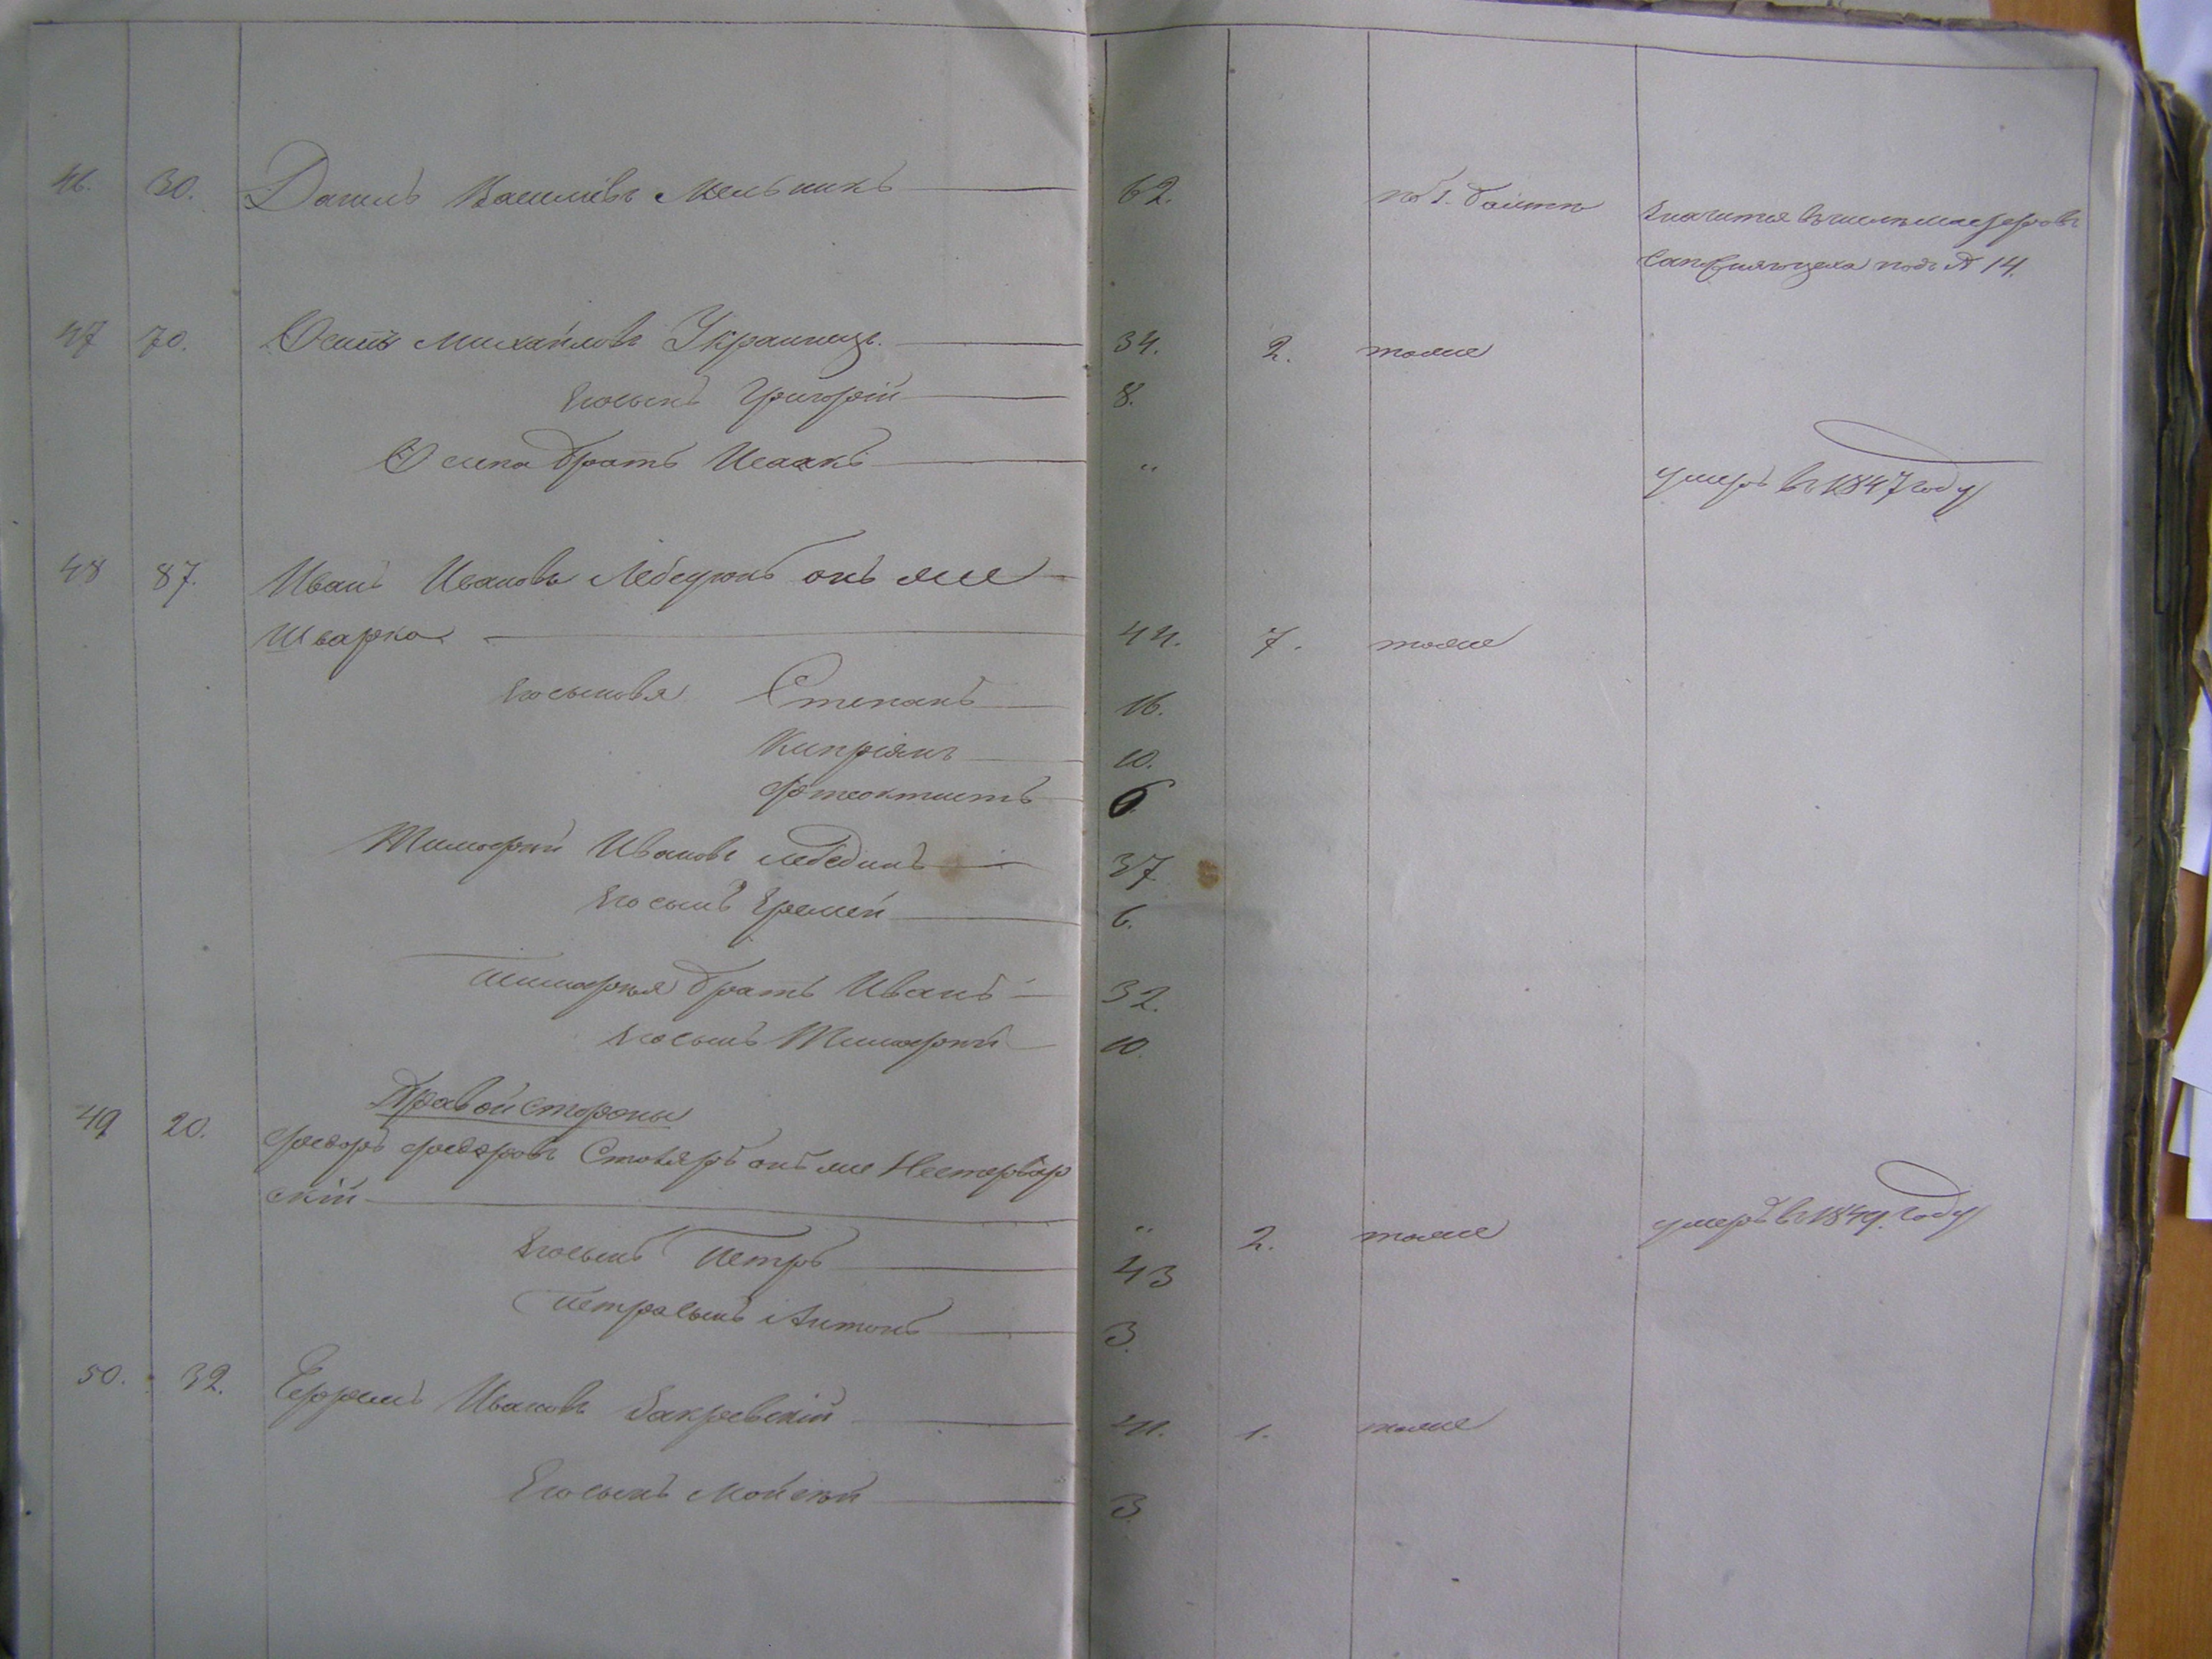 46. 30. Данилъ Василіевъ Мельникъ 62. по 1. Значится въ числе мастеровъ
Сапожнаго цеха подъ № 14.
47 70. Осипъ Михайловъ Украинецъ. 34. 2. тоже
Егосынъ Григорій 8.
Осипа братъ Исаакъ " умеръ въ 1847 году
48 87. Иванъ Ивановъ Лебедюкъ онъ же
Шварка 44. 7. тоже
Егосыновя Степанъ 16.
Кипріянъ 10.
Фтеоктистъ 6
Тимофей Ивановъ Лебединъ 37
Егосынъ Еремей 6.
Тимофея братъ Иванъ 32.
Егосынъ Тимофей 10.
Правой стороны
49 20. Федоръ Федоровъ Столяръ онъ же Нестервар
скій " 2. тоже умеръ въ 1849. году
Егосынъ Петръ 43
Петра сынъ Антонъ 3.
50. 32. Ефремъ Ивановъ Закревскій 41. 1. тоже
Егосынъ Мойсей 3.